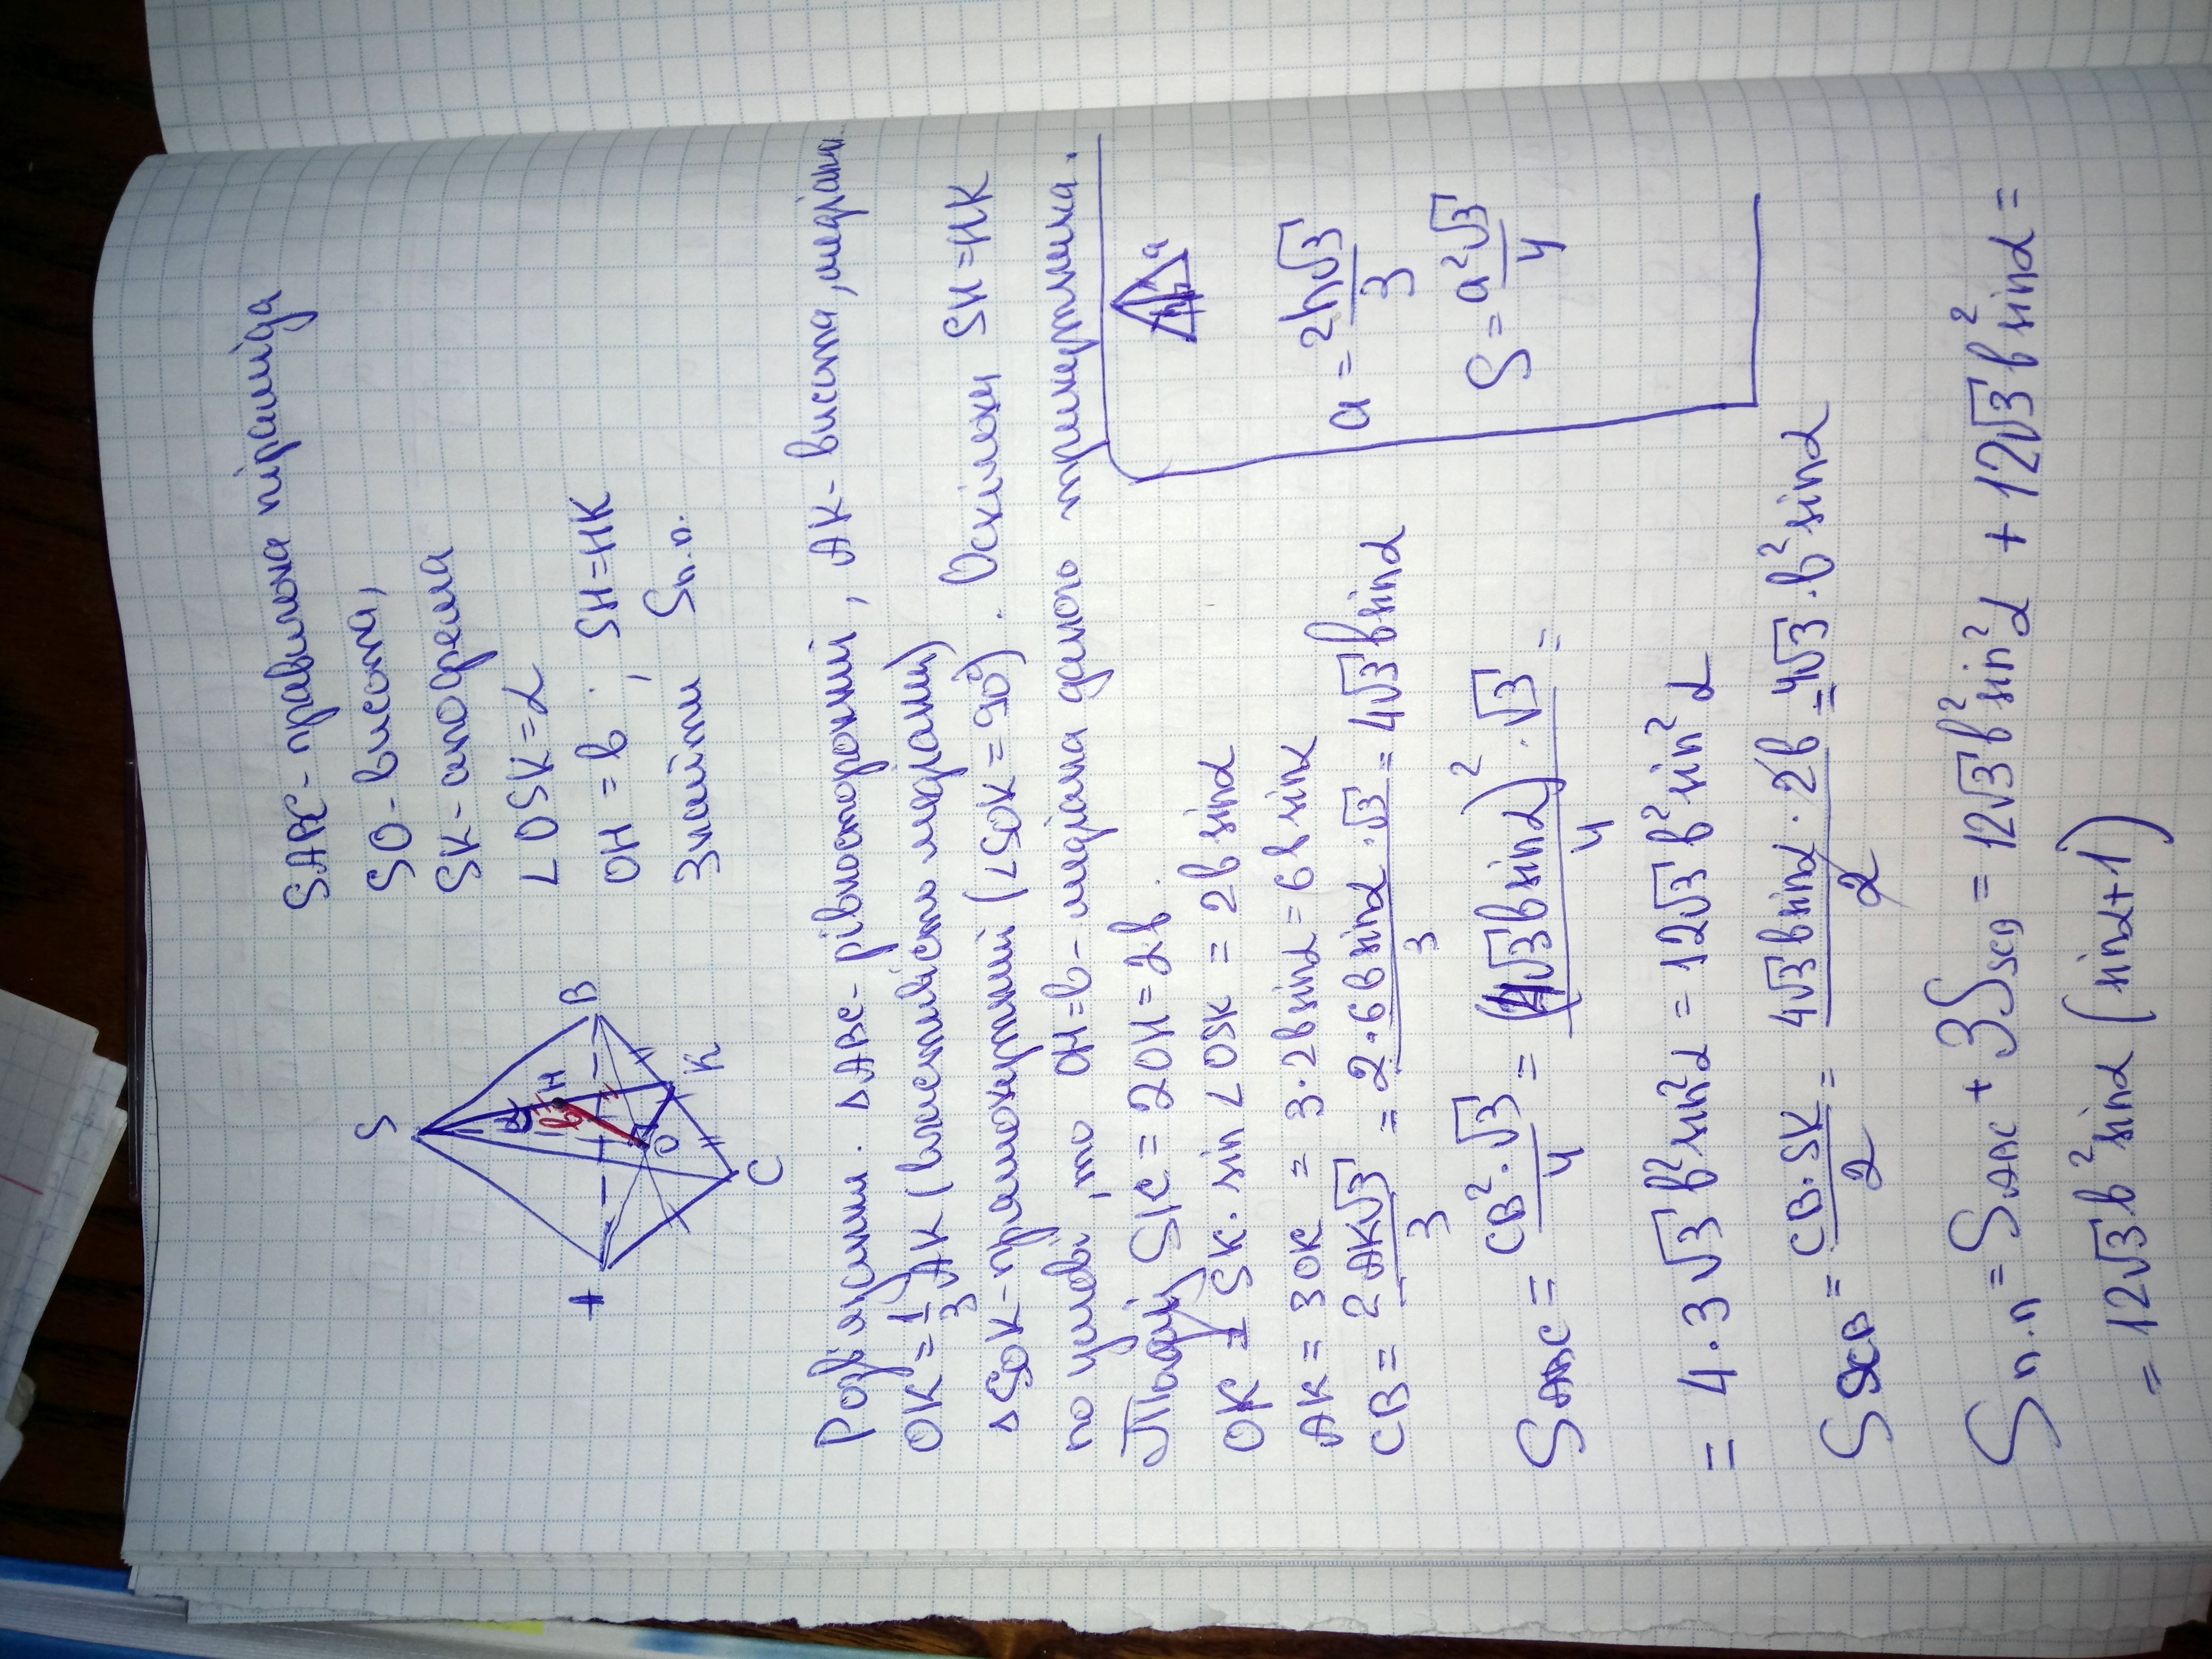 SABC - правильна піраміда
SO - висота,
SK - апофема
∠OSK = α
OH = b ; SH = HK
Знайти Sп.п.
S
A
B
C
K
O
H
α
b
Розв'язання. ΔABC - рівносторонній, AK - висота, медіана.
OK = 1/3 AK (властивість медіани)
ΔSOK - прямокутний (∠SOK = 90°). Оскільки SH = HK
по умові, то OH = b - медіана даного трикутника.
Тоді SK = 2OH = 2b.
OK = SK · sin ∠OSK = 2b sinα
AK = 3OK = 3·2b sinα = 6b sinα
CB = 2AK√3/3 = 2·6b sinα·√3/3 = 4√3 b sinα
h a
a = 2h√3/3
S = a²√3/4
S ABC = CB²·√3/4 = (4√3 b sinα)²·√3/4 =
= 4·3√3 b² sin²α = 12√3 b² sin²α
S SCB = CB·SK/2 = 4√3 b sinα · 2b/2 = 4√3·b² sinα
Sп.п = S ABC + 3S SCB = 12√3 b² sin²α + 12√3 b² sinα =
= 12√3 b² sinα (sinα+1)